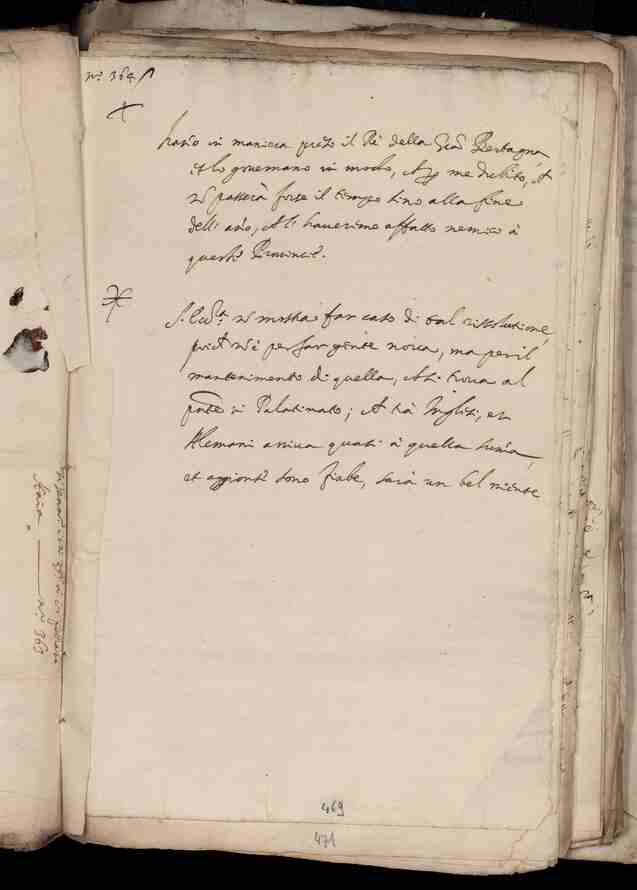 nº 364
hano in maniera preso il Rè della Gran Bertagna
et lo governano in modo, che me dubito, che
nõ passerà forse il tempo sino alla fine
dell' año, che li haveremo affatto nemico à
queste Provincie.
S. Ecca. nõ mostra far caso di tal rissolutione,
poiche nõ è per far gente nova, ma per il
mantenimento di quella, che si trova al
pñte in Palatinato; che trà Inglesi, et
Alemani arriva quasi à quella suma,
et aggionte sono fiabe, sarà un bel niente
nº 363
469
471